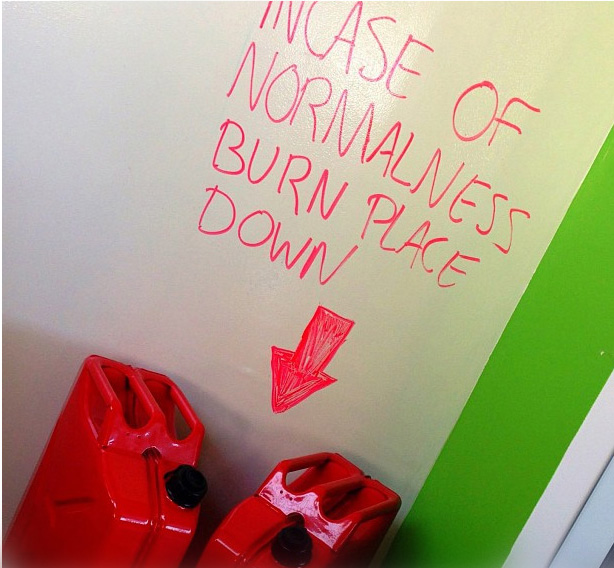 INCASE OF
NORMALNESS
BURN PLACE
DOWN